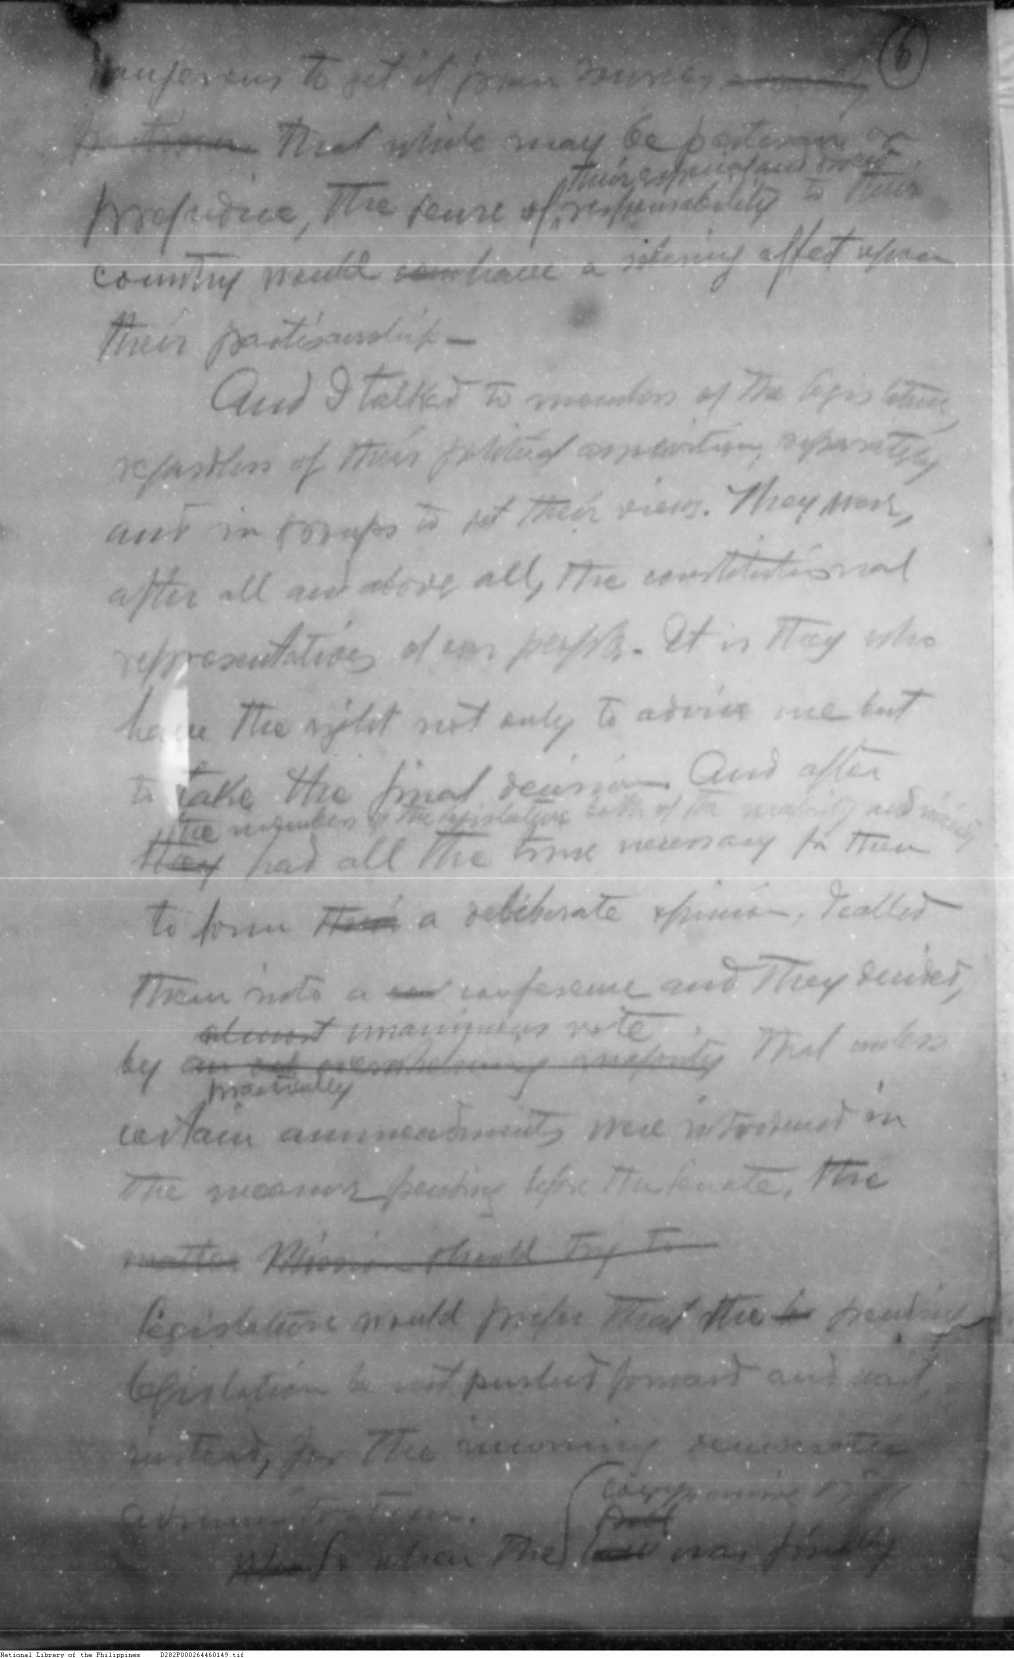 6
dangerous to get it from
that while may be partisan or
their
prejudice, the sense of responsibility to their
country would have a effect upon
their partisanship —
And I talked to members of the legislature,
regardless of their political separately
and in groups to get their views. They were,
after all and above all, the constitutional
representatives of our people. It is they who
have the right not only to advise me but
to take the final decision. And after
the members of the legislature both of the majority and minority
they had all the time necessary for them
to form their a deliberate opinion, I called
them into a conference and they decided,
almost unanimous vote
by an overwhelming majority that unless
practically
certain ammendments were introduced in
the measure pending before the Senate, the
matter Mission should try to
legislature would prefer that the pending
legislation be not pushed forward and wait,
instead, for the incoming democratic
administration.
compromise bill
bill
So when the was finally
National Library of the Philippines D282P000264460149.tif